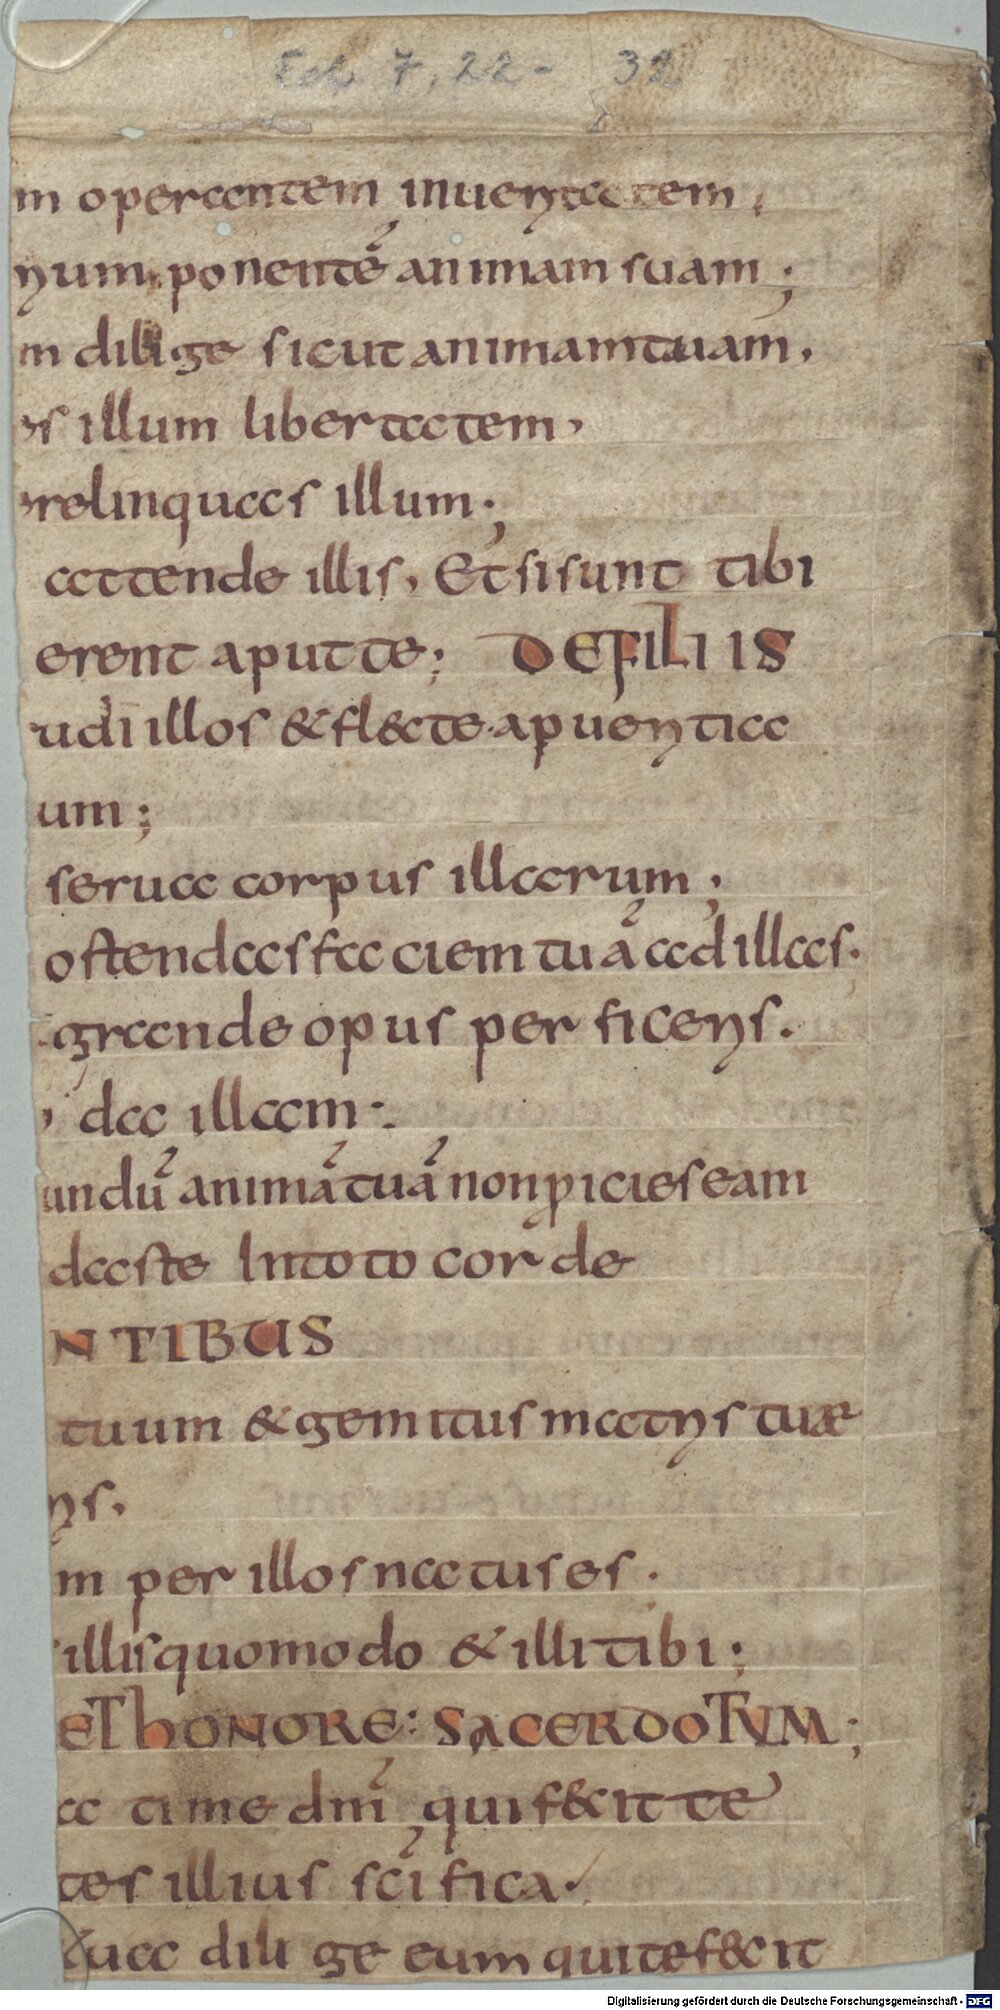 Ecl. 7, 22 - 32
m operantem in ueritatem,
rium ponentē animam suam;
m dilige sicut animam tuam,
s illum libertatem,
relinquas illum;
attende illis, Et si sunt tibi
erent aput te; DE FILIIS
udi illos & fl&cte a pueritia
um;
serua corpus illarum;
ostendas faciem tuā ad illas.
grande opus perficeris.
da illam.
undū animā tuā non ꝓicies eam
daste In toto corde
NTIBUS
tuum & gemitus matris tuæ
ris,
m per illos natus es.
illis quomodo & illi tibi;
ET hONORE: SACERDOTVM;
a time dnī qui fecit te
tes illius scīfica
tua dilige eum qui te fecit
Digitalisierung gefördert durch die Deutsche Forschungsgemeinschaft - DFG